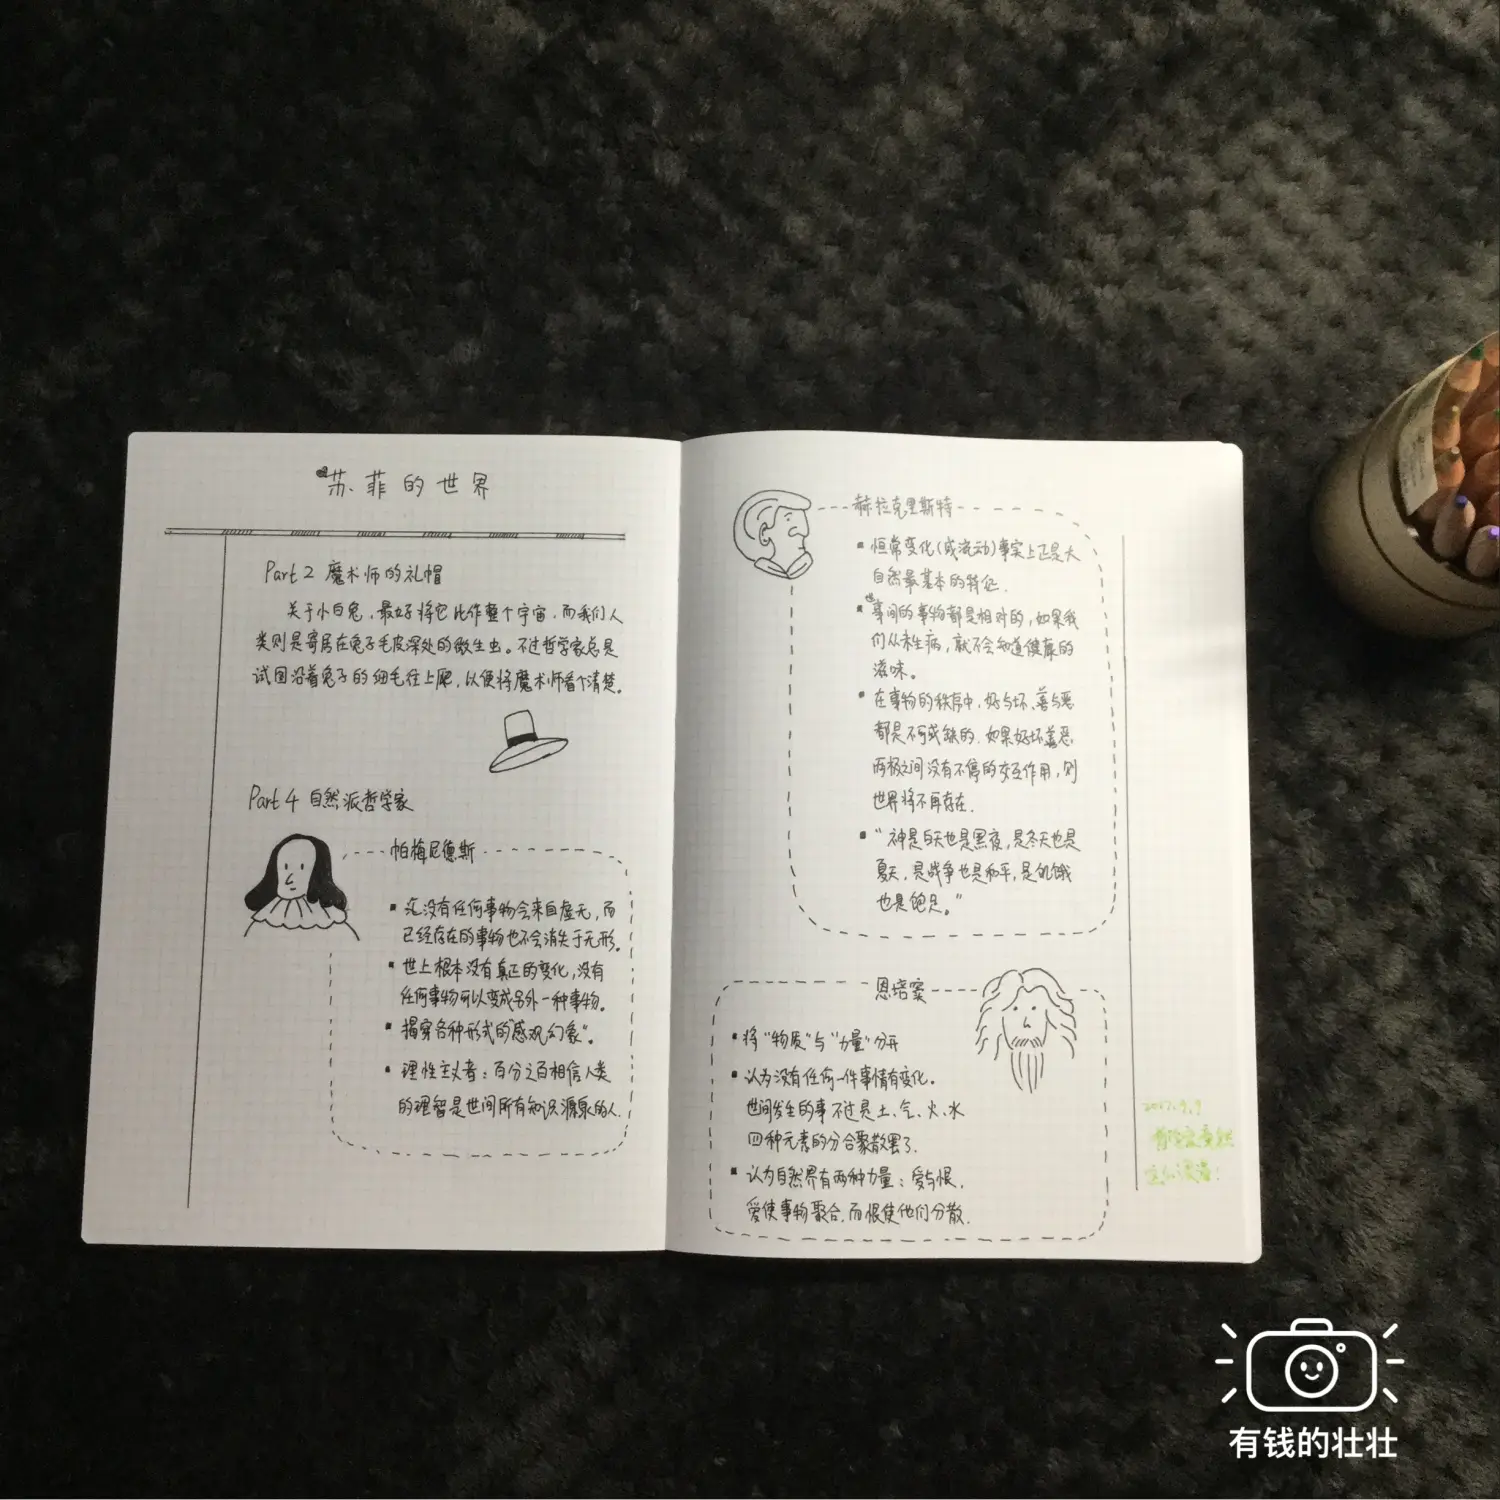 苏菲的世界
Part 2 魔术师的礼帽
关于小白兔，最好将它比作整个宇宙，而我们人
类则是寄居在兔子毛皮深处的微生虫。不过哲学家总是
试图沿着兔子的细毛往上爬，以便将魔术师看个清楚。
Part 4 自然派哲学家
帕梅尼德斯
▪ 没有任何事物会来自虚无，而
已经存在的事物也不会消失于无形。
▪ 世上根本没有真正的变化，没有
任何事物可以变成另外一种事物。
▪ 揭穿各种形式的"感观幻象"。
▪ 理性主义者：百分之百相信人类
的理智是世间所有知识源泉的人.
赫拉克里斯特
▪ 恒常变化(或流动)事实上正是大
自然最基本的特征.
▪ 事间的事物都是相对的，如果我
们从未生病，就不会知道健康的
滋味.
▪ 在事物的秩序中，好与坏、善与恶
都是不可或缺的.如果好坏善恶
两极之间没有不停的交互作用，则
世界将不再存在.
▪ "神是白天也是黑夜，是冬天也是
夏天，是战争也是和平，是饥饿
也是饱足。"
恩培窦
▪ 将"物质"与"力量"分开
▪ 认为没有任何一件事情有变化.
世间发生的事不过是土、气、火、水
四种元素的分合聚散罢了.
▪ 认为自然界有两种力量：爱与恨.
爱使事物聚合,而恨使他们分散.
2017.9.9
有钱的壮壮